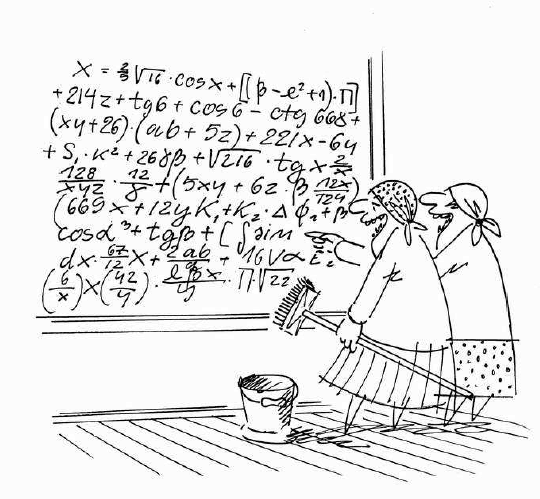 x = 2/3 √16 · cos x + [[β - e² + 1) · ∏]
+ 214z + tg6 + cos6 - ctg 668 +
(xy + 26) · (ab + 5z) + 221x - 6y
+ S₁ · K² + 268β + √216 · tg x 2/x
128/xyz · 12/8 + (5xy + 6z · β 12x/124)
(669x + 12y K₁ + K₂ · Δ φ₁ + β
cosα³ + tgβ + [∫sin
dx · 67/12 x + 2ab + 16Vα
(6/x) x (42/y) · ∏ · √22